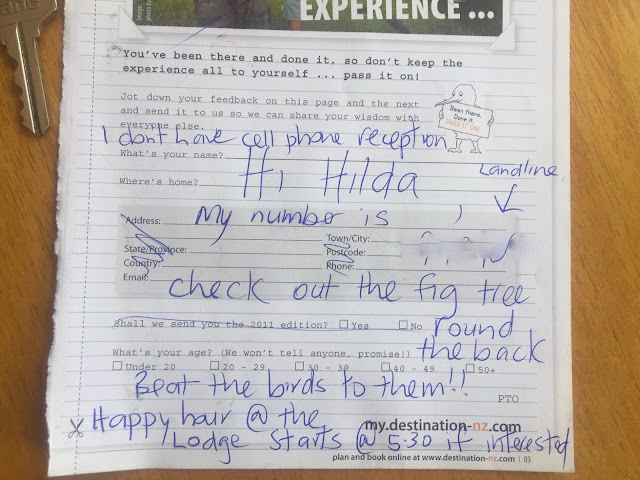 EXPERIENCE ...
You've been there and done it, so don't keep the
experience all to yourself ... pass it on!
Jot down your feedback on this page and the next
and send it to us so we can share your wisdom with
everyone else.
Been there.
Done it.
PASS IT ON!
I dont have cell phone reception
What's your name?
Hi Hilda
Where's home?
Landline
Address:
My number is
Town/City:
State/Province:
Postcode:
Country:
Phone:
Email:
check out the fig tree
Shall we send you the 2011 edition? Yes No
round
What's your age? (We won't tell anyone, promise!)
the back
Under 20 20 - 29 30 - 39 40 - 49 50+
Beat the birds to them!!
PTO
Happy hour @ the
my.destination-nz.com
Lodge starts @ 5.30 if interested
plan and book online at www.destination-nz.com | 03